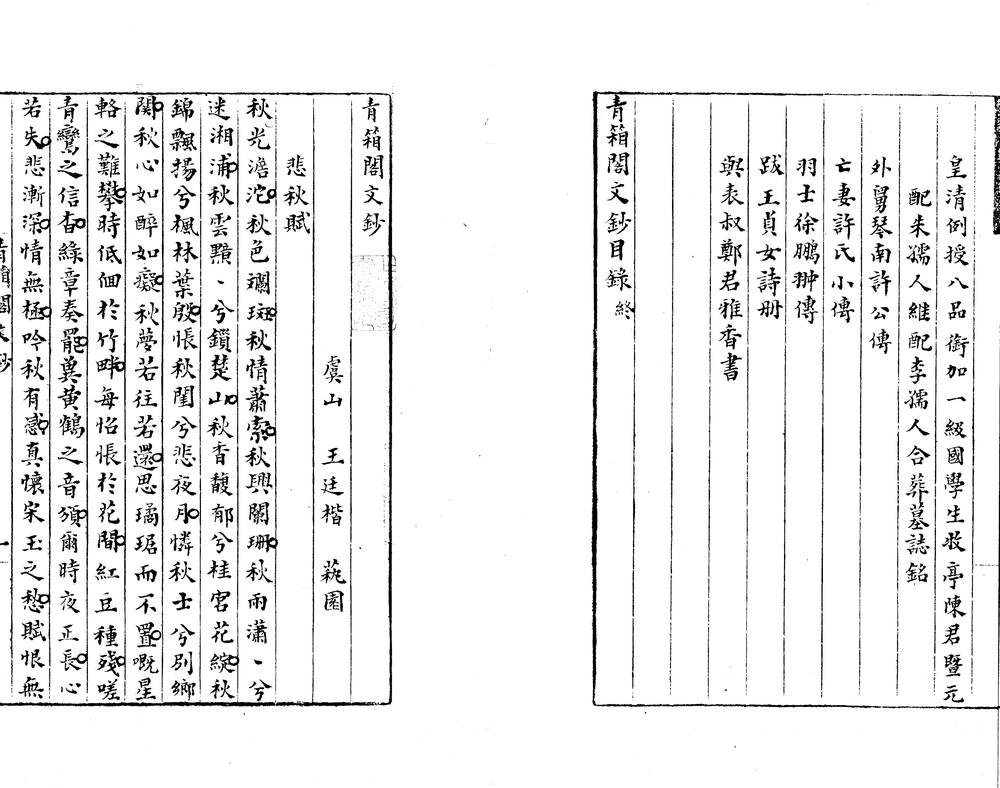 皇清例授八品銜加一級國學生收亭陳君暨元
配朱孺人継配李孺人合葬墓誌銘
外舅琴南許公傳
亡妻許氏小傳
羽士徐鵬翀傳
跋王貞女詩册
與表叔鄭君雅香書
青箱閣文鈔目錄 終
青箱閣文鈔
虞山 王廷楷 蓻園
悲秋賦
秋光澹沱秋色斓斑秋情蕭索秋興闌珊秋雨瀟、兮
迷湘浦秋雲黯、兮鎖楚山秋香馥郁兮桂宮花綻秋
錦飄揚兮楓林葉殷悵秋閨兮悲夜月憐秋士兮別鄉
関秋心如醉如癡秋夢若往若還思璚琚而不置嘅星
輅之難攀時低佪於竹畔每怊悵於花間紅豆種殘嗟
青鸞之信杳綠章奏罷奠黄鶴之音須爾時夜正長心
若失悲漸深情無極吟秋有感真懷宋玉之愁賦恨無